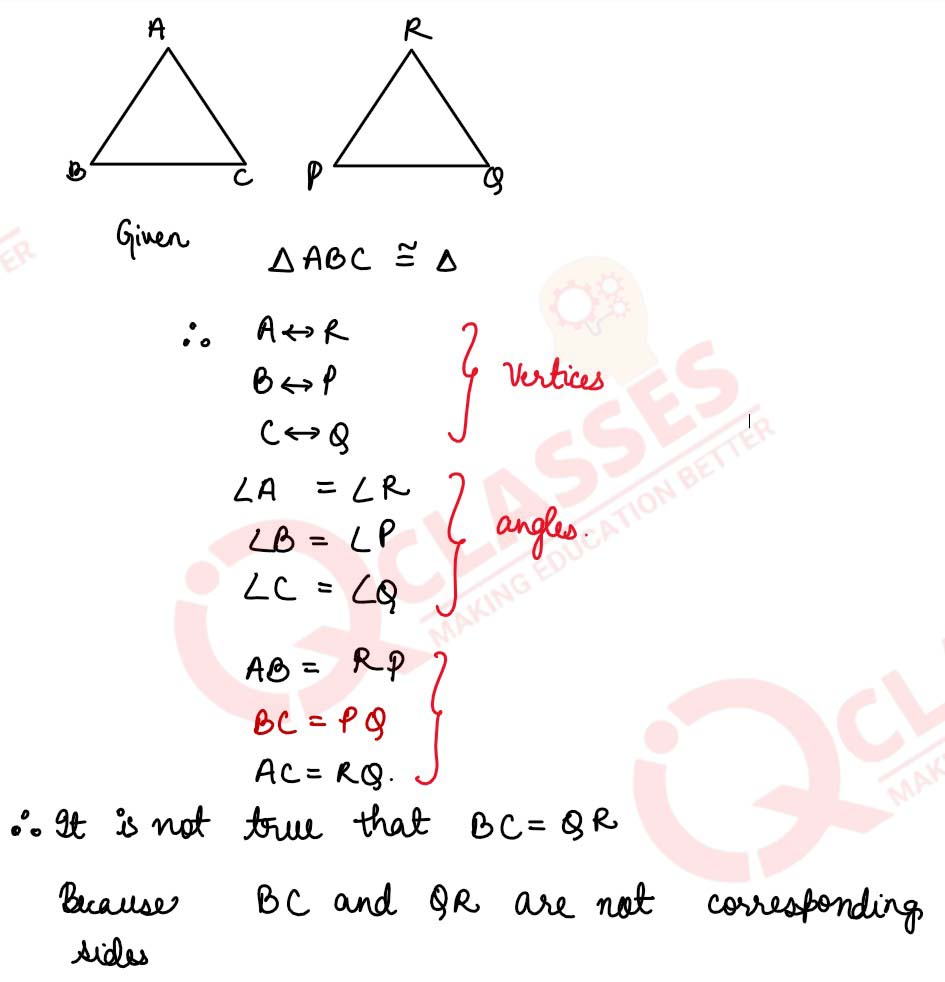 A
R
B
C
P
Q
Given
△ ABC ≅ △
∴ A ↔ R
B ↔ P
C ↔ Q
Vertices
∠A = ∠R
∠B = ∠P
∠C = ∠Q
angles.
AB = RP
BC = PQ
AC = RQ.
∴ It is not true that BC = QR
Because BC and QR are not corresponding
sides
ER
iQ CLASSES
MAKING EDUCATION BETTER
iQ CLA
MAKI